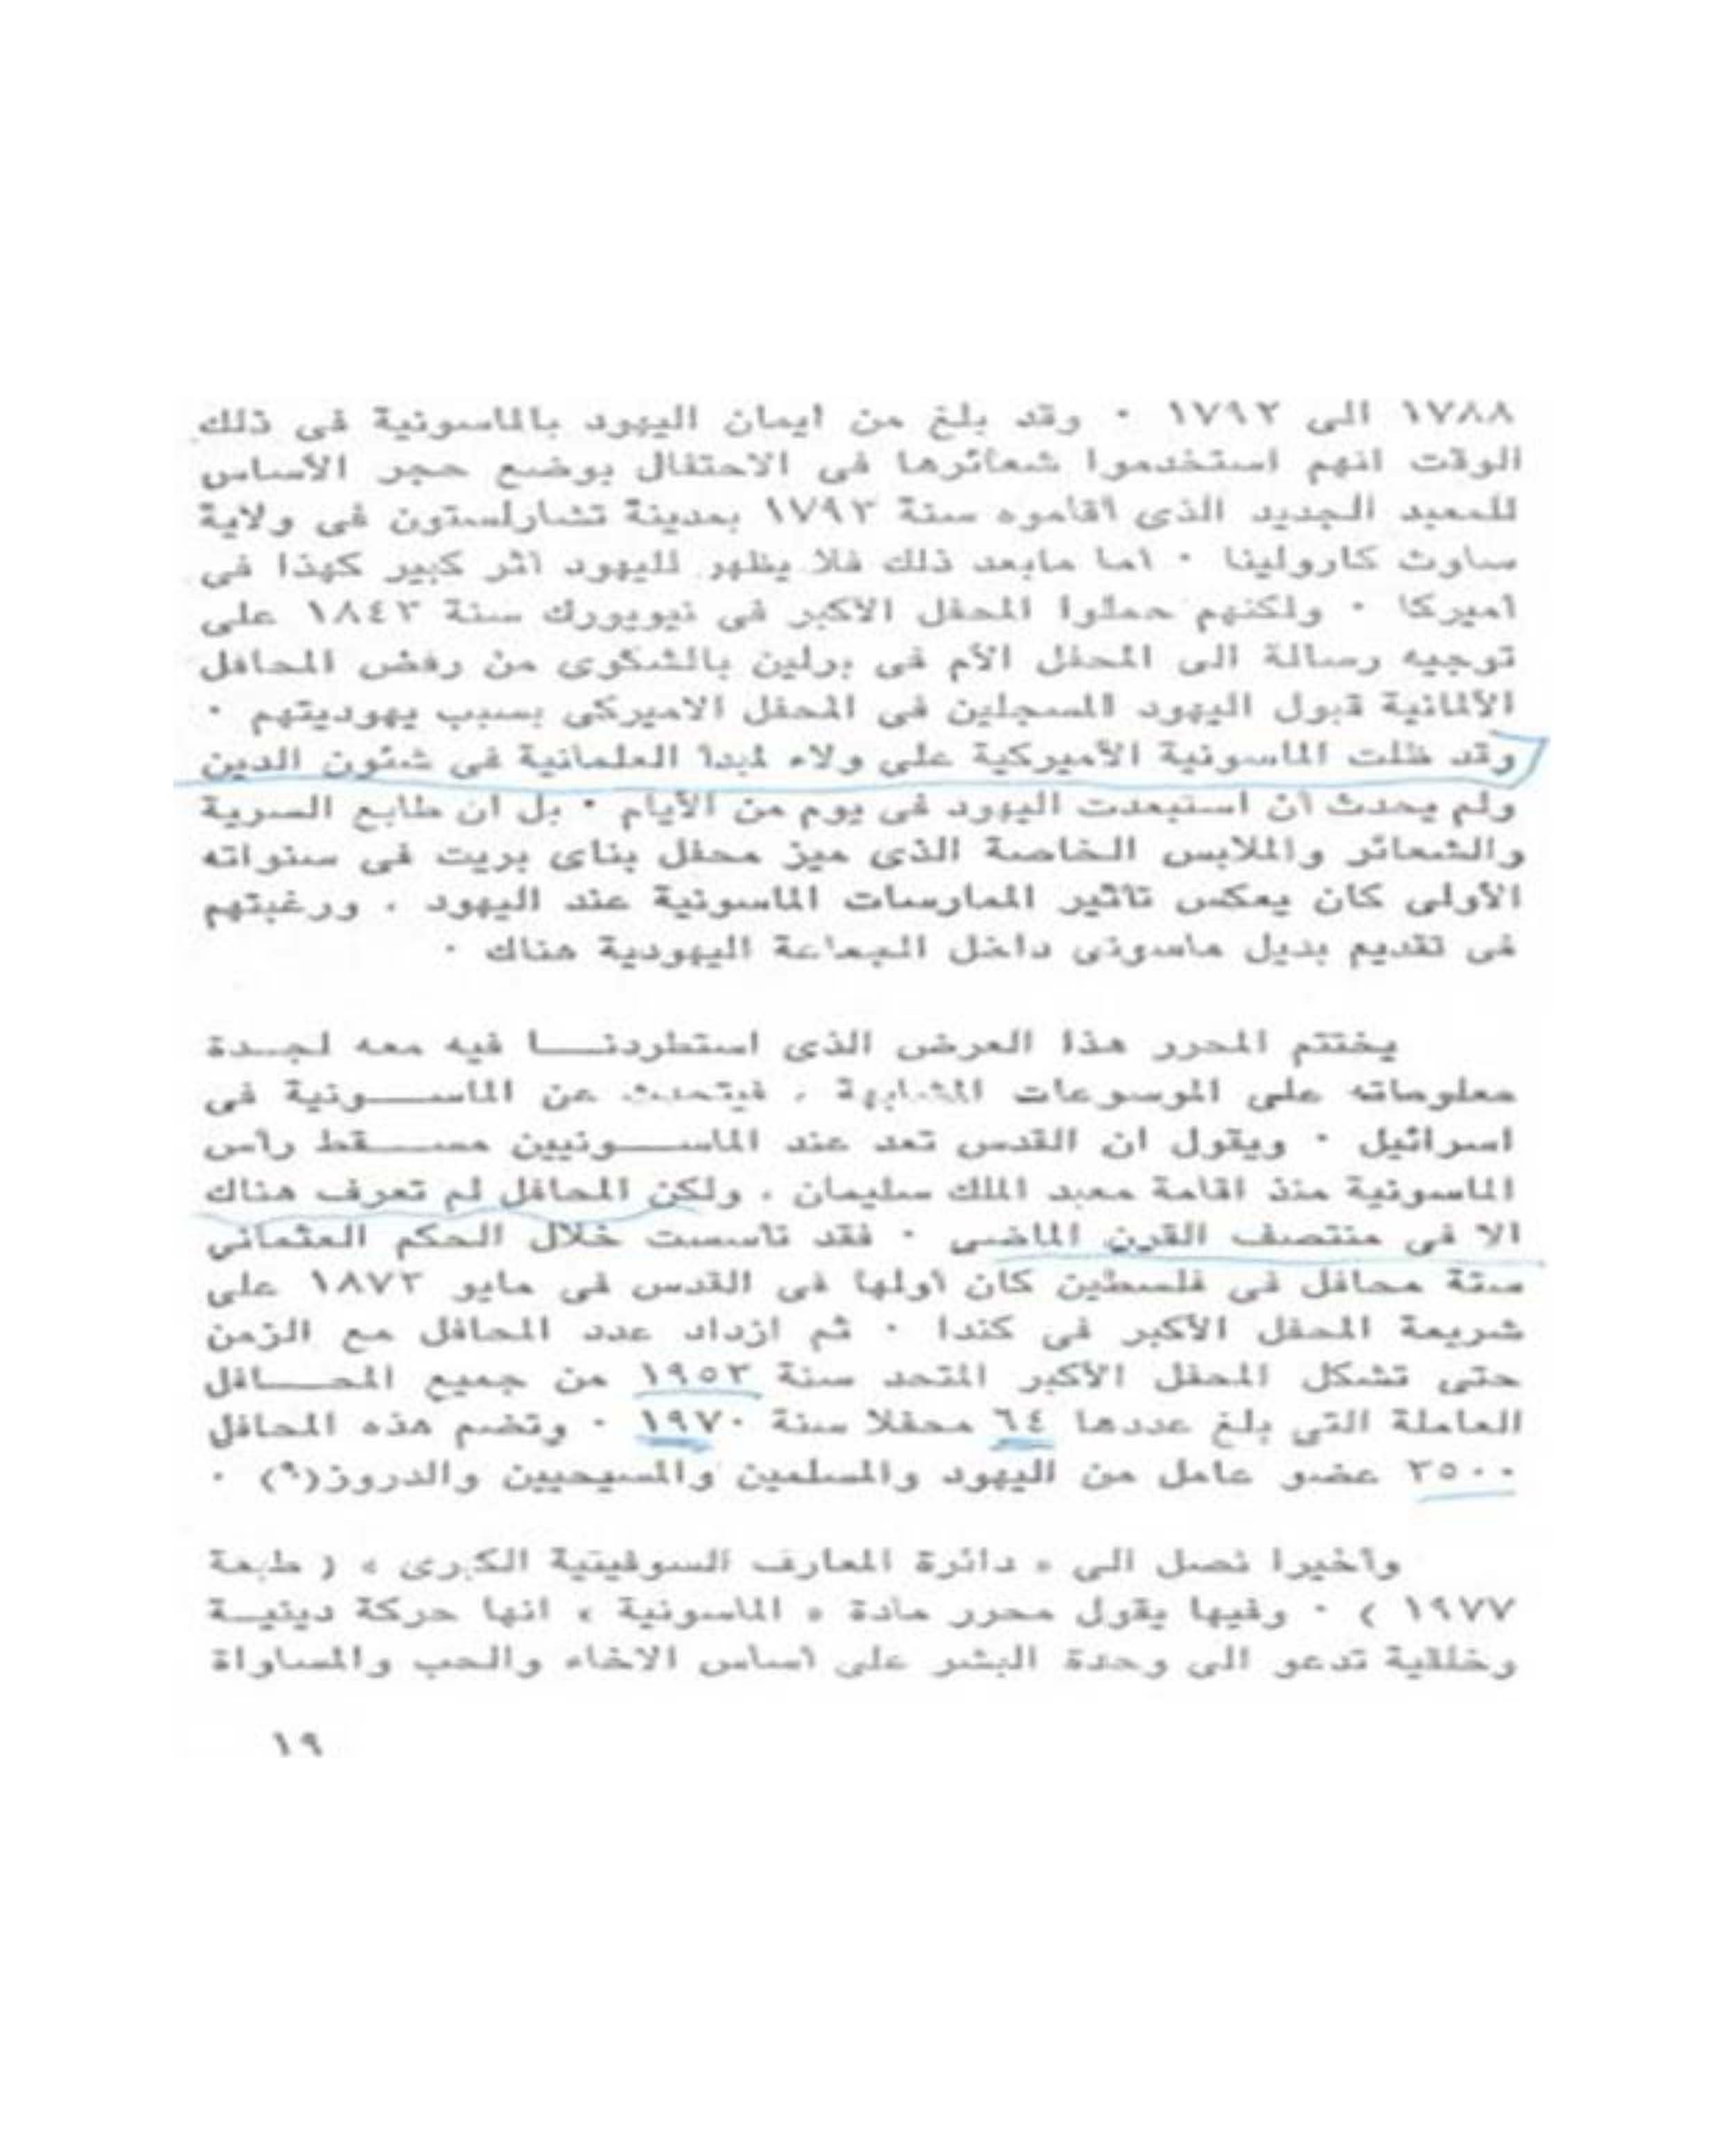 ١٧٨٨ الى ١٧٩٣ · وقد بلغ من ايمان اليهود بالماسونية فى ذلك
الوقت انهم استخدموا شعائرها فى الاحتفال بوضع حجر الأساس
للمعبد الجديد الذى أقاموه سنة ١٧٩٣ بمدينة تشارلستون فى ولاية
ساوث كارولينا · أما مابعد ذلك فلا يظهر لليهود أثر كبير كهذا فى
أميركا · ولكنهم حملوا المحفل الأكبر فى نيويورك سنة ١٨٤٣ على
توجيه رسالة الى المحفل الأم فى برلين بالشكوى من رفض المحافل
الألمانية قبول اليهود المسجلين فى المحفل الاميركى بسبب يهوديتهم ·
وقد ظلت الماسونية الأميركية على ولاء لمبدأ العلمانية فى شئون الدين
ولم يحدث أن استبعدت اليهود فى يوم من الأيام · بل ان طابع السرية
والشعائر والملابس الخاصة الذى ميز محفل بناى بريت فى سنواته
الأولى كان يعكس تأثير الممارسات الماسونية عند اليهود ، ورغبتهم
فى تقديم بديل ماسونى داخل الجماعة اليهودية هناك ·
يختتم المحرر هذا العرض الذى استطردنـــا فيه معه لجـدة
معلوماته على الموسوعات المشابهة ، فيتحدث عن الماســـونية فى
اسرائيل · ويقول ان القدس تعد عند الماســـونيين مســـقط رأس
الماسونية منذ اقامة معبد الملك سليمان ، ولكن المحافل لم تعرف هناك
الا فى منتصف القرن الماضى · فقد تأسست خلال الحكم العثمانى
ستة محافل فى فلسطين كان أولها فى القدس فى مايو ١٨٧٣ على
شريعة المحفل الأكبر فى كندا · ثم ازداد عدد المحافل مع الزمن
حتى تشكل المحفل الأكبر المتحد سنة ١٩٥٣ من جميع المحـــافل
العاملة التى بلغ عددها ٦٤ محفلا سنة ١٩٧٠ · وتضم هذه المحافل
٣٥٠٠ عضو عامل من اليهود والمسلمين والمسيحيين والدروز(٩) ·
وأخيرا نصل الى « دائرة المعارف السوفيتية الكبرى » ( طبعة
١٩٧٧ ) · وفيها يقول محرر مادة « الماسونية » انها حركة دينيـة
وخلقية تدعو الى وحدة البشر على أساس الاخاء والحب والمساواة
١٩